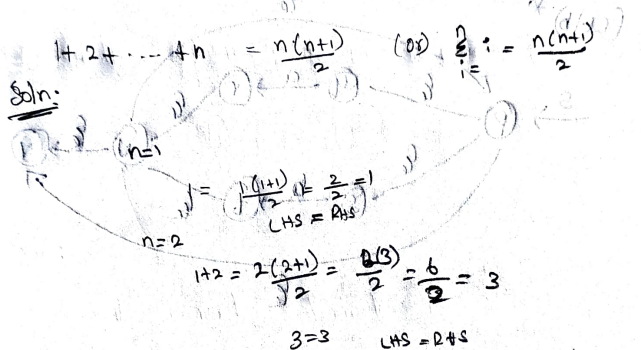 1+2+ ..... +n = n(n+1)/2 (or) n Σ i=1 i = n(n+1)/2
Soln:
n=1
1 = 1(1+1)/2 = 2/2 = 1
LHS = RHS
n=2
1+2 = 2(2+1)/2 = 2(3)/2 = 6/2 = 3
3=3 LHS = RHS